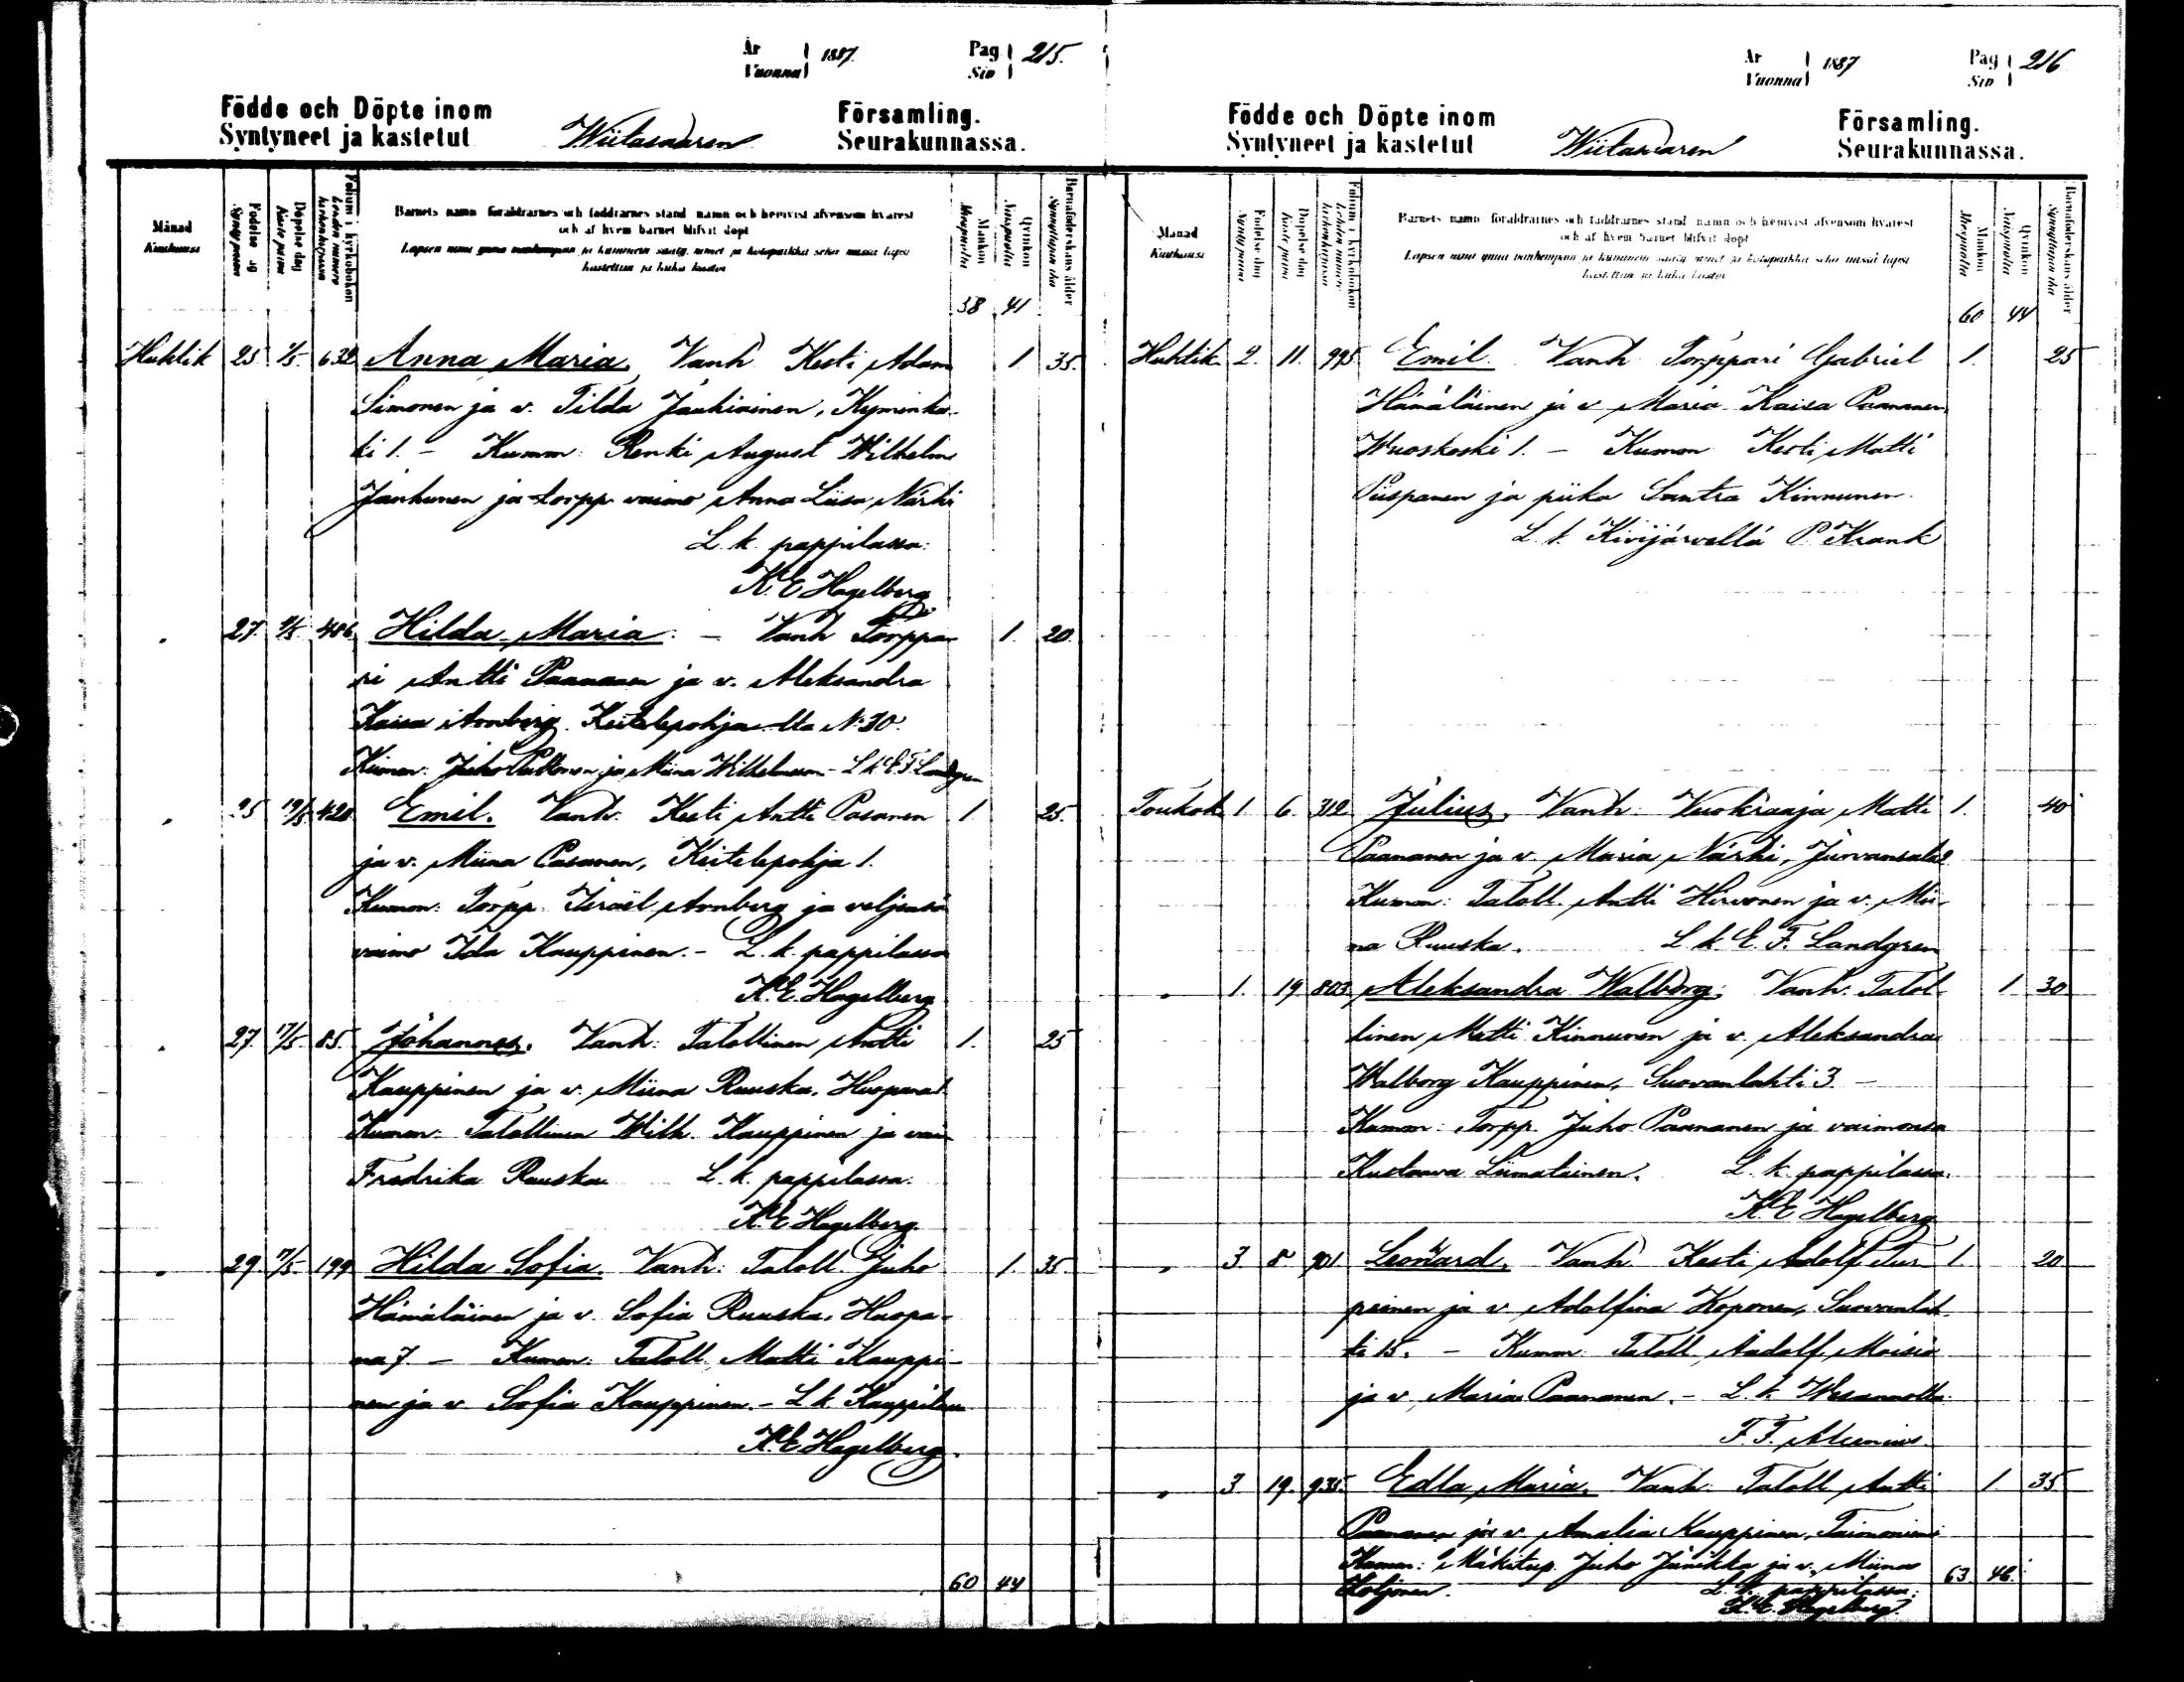 År
Vuonna 1887.
Pag
Siv 215.
Födde och Döpte inom
Syntyneet ja kastetut
Wiitasaaren
Församling.
Seurakunnassa.
Månad
Kuukausi
Födelse dag
Syntypäivä
Döpelse dag
Kaste päivä
Folium i kyrkoboken
Barnets namn föräldrarnes och faddrarnes stånd namn och hemvist äfvensom hvarest
och af hvem barnet blifvit döpt
Lapsen nimi ynnä vanhempain ja kummein sääty, nimet ja kotopaikka sekä missä lapsi
kastettiin ja kuka kastoi
Mankön
Miespuolia
Qvinkön
Naispuolia
Barnaföderskans ålder
Synnyttäjän ikä
38 41
Huhtik 25 1/5. 632 Anna Maria. Vanh Kesti Adam 1 35.
Simonen ja v. Tilda Jauhiainen, Kyminkos-
ki 1. - Kumm: Renki August Wilhelm
Janhunen ja torpp. vaimo Anna Liisa Närhi
L. k. pappilassa:
K. E Hagelberg
27. 406 Hilda Maria. - Vanh Torppa- 1. 20.
ri Antti Paananen ja v. Aleksandra
Kaisa Arnberg. Keitelepohja lta N:30.
Kumm: Juho Puttonen ja Miina Wilhelmsson - L k E. F. Landgren
25 19/5. 420 Emil. Vanh. Kesti Antti Pasanen 1 25.
ja v. Miina Pasanen, Keitelepohja 1.
Kumm: Torpp. Israël Arnberg ja veljensä
vaimo Ida Kauppinen. - L. k. pappilassa
K. E. Hagelberg
27. 17/5 85. Johannes. Vanh: Talollinen Antti 1. 25
Kauppinen ja v. Miina Ruuska. Huopana 1.
Kumm: Talollinen Wilh. Kauppinen ja vai
Fredrika Ruuska L. k. pappilassa:
K. E Hagelberg
29. 17/5. 199 Hilda Sofia. Vanh: Taloll. Juho 1. 35.
Hämäläinen ja v. Sofia Ruuska. Huopa-
na 7. - Kumm: Taloll. Matti Kauppi-
nen ja v Sofia Kauppinen. - L k Kauppilassa
K. E Hagelberg.
60 44
År
Vuonna 1887
Pag
Siv 216
Födde och Döpte inom
Syntyneet ja kastetut
Wiitasaaren
Församling.
Seurakunnassa.
Månad
Kuukausi
Födelse dag
Syntypäivä
Döpelse dag
Kaste päivä
Folium i kyrkoboken
Barnets namn föräldrarnes och faddrarnes stånd namn och hemvist äfvensom hvarest
och af hvem barnet blifvit döpt
Lapsen nimi ynnä vanhempain ja kummein sääty nimet ja kotopaikka sekä missä lapsi
kastettiin ja kuka kastoi
Mankön
Miespuolia
Qvinkön
Naispuolia
Barnaföderskans ålder
Synnyttäjän ikä
60 44
Huhtik. 2. 11. 995 Emil. Vanh Torppari Gabriel 1. 25
Hämäläinen ja v Maria Kaisa Paananen
Wuoskoski 1. - Kumm Kesti Matti
Piispanen ja piika Santra Kinnunen.
L. k. Kivijärvellä P. Krank
Toukok. 1 6. 312. Julius. Vanh: Vuokraaja Matti 1. 40
Paananen ja v. Maria Närhi, Jurvansalo
Kumm: Taloll. Antti Hirvonen ja v. Mii-
na Ruuska. L. k. E. F. Landgren
1. 19 803. Aleksandra Walborg. Vanh. Talol- 1 30
linen Matti Kinnunen ja v. Aleksandra
Walborg Kauppinen, Suovanlahti 3. -
Kumm: Torpp. Juho Paananen ja vaimonsa
Kustaava Liimatainen. L. k. pappilassa.
K. E Hagelberg
3 8 901 Leonard. Vanh Kesti Adolf Tur- 1. 20
peinen ja v Adolfina Koponen, Suovanlah-
ti 15. - Kumm: Taloll Aadolf Moisio
ja v. Maria Paananen. - L. k. Wesannolla
F. F.
3 19. 935. Edla Maria. Vanh. Taloll Antti 1 35
Paananen ja v. Amalia Kauppinen, Taimoniemi
Kumm: Mäkitup. Juho Jänikka ja v. Miina
Koljonen. L. k. pappilassa:
K. E. Hagelberg.
63. 46.